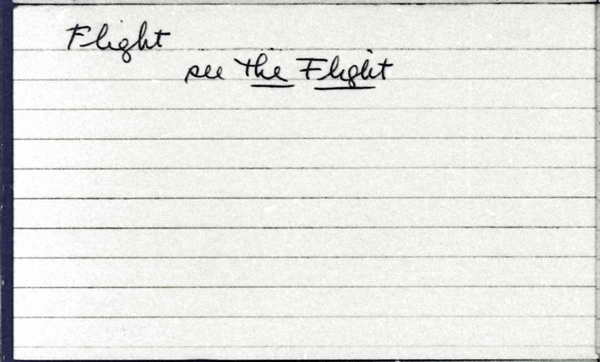 Flight
see The Flight